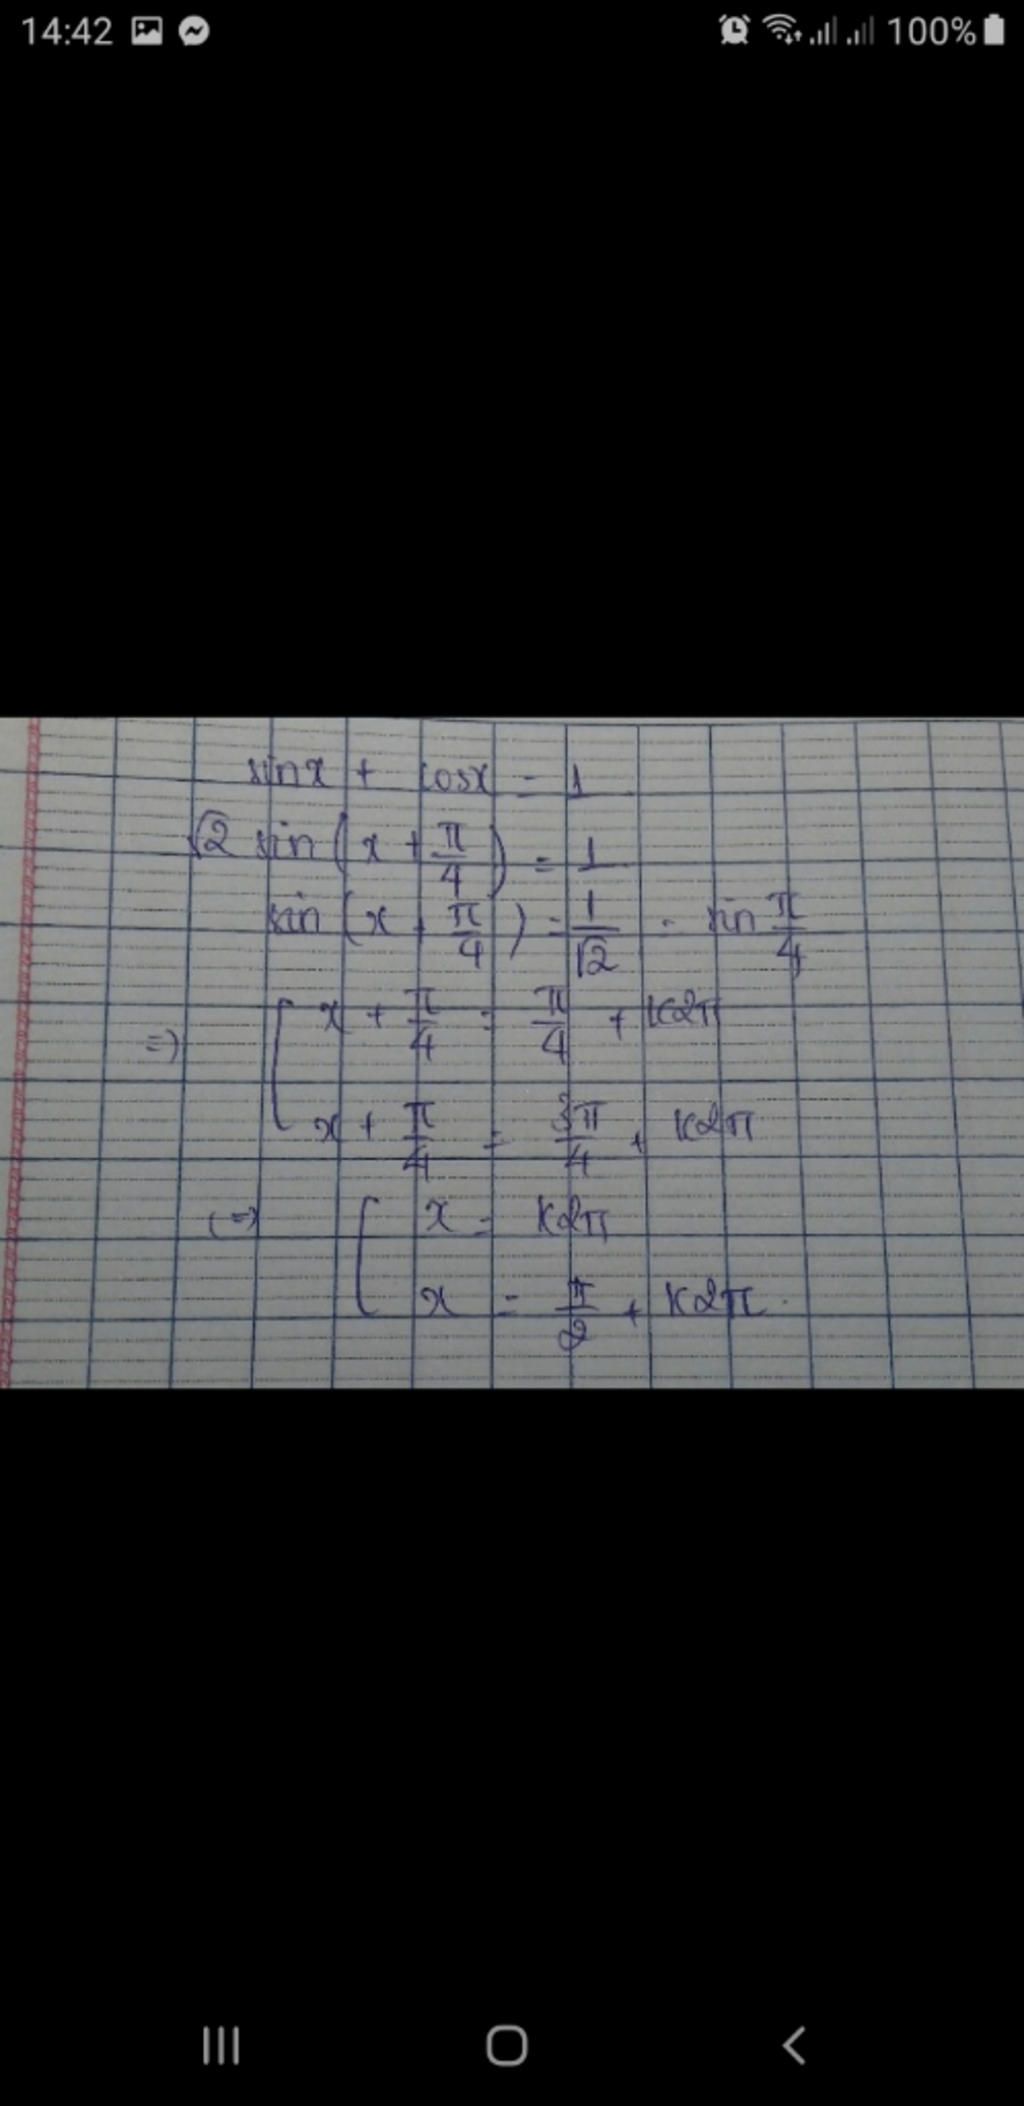 14:42 100%
sinx + cosx = 1
√2 sin(x + π/4) = 1
sin(x + π/4) = 1/√2 = sin π/4
=> [ x + π/4 = π/4 + k2π
x + π/4 = 3π/4 + k2π
(=> [ x = k2π
x = π/2 + k2π.